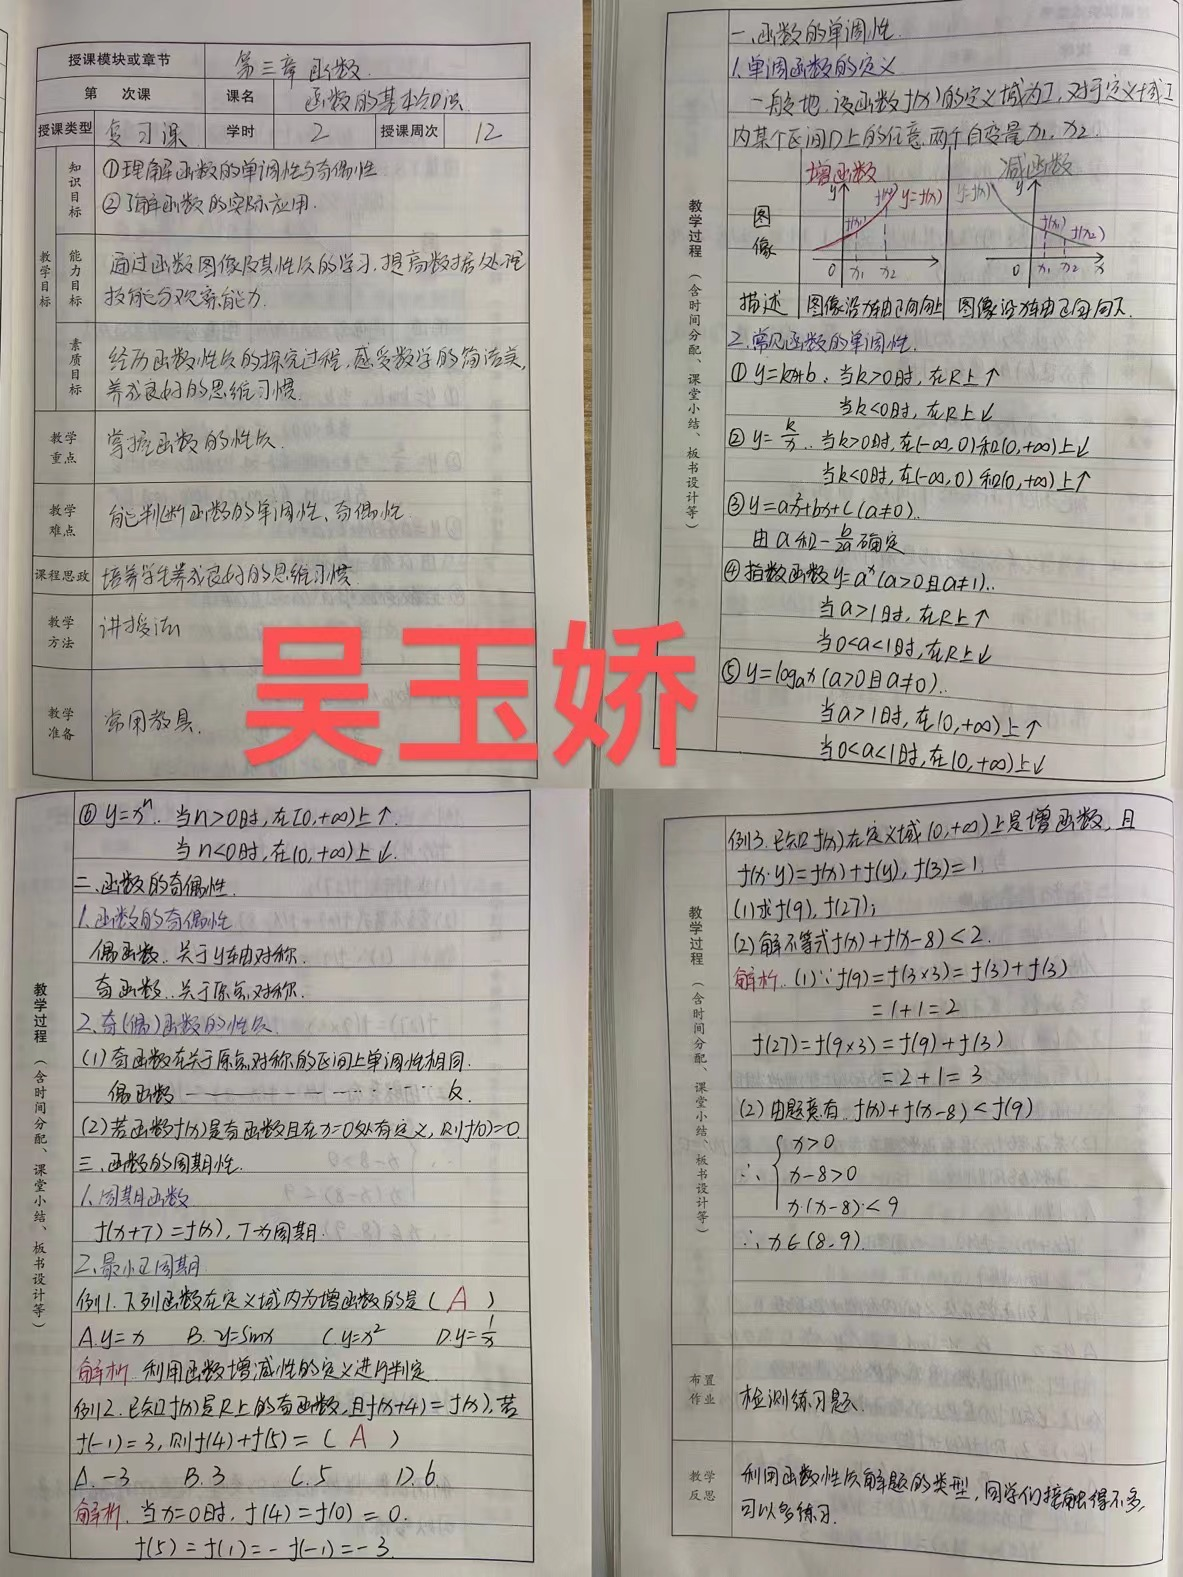 授课模块或章节 第三章 函数.
第 次课 课名 函数的基本知识
授课类型 复习课 学时 2 授课周次 12
教学目标
知识目标
①理解函数的单调性与奇偶性
②了解函数的实际应用.
能力目标
通过函数图像及其性质的学习,提高数据处理
技能与观察能力.
素质目标
经历函数性质的探究过程,感受数学的简洁美,
养成良好的思维习惯.
教学重点 掌握函数的性质.
教学难点 能判断函数的单调性、奇偶性.
课程思政 培养学生养成良好的思维习惯.
教学方法 讲授法
教学准备 常用教具.
吴玉娇
教学过程(含时间分配、课堂小结、板书设计等)
一、函数的单调性.
1.单调函数的定义
一般地,设函数f(x)的定义域为I,对于定义域I
内某个区间D上的任意两个自变量x₁,x₂.
增函数 减函数
图像
y f(x₂) y=f(x) f(x₁) 0 x₁ x₂
y=f(x) y f(x₁) f(x₂) 0 x₁ x₂ x
描述 图像沿x轴正向向上 图像沿x轴正向向下.
2.常见函数的单调性.
①y=kx+b. 当k>0时,在R上↑
当k<0时,在R上↓
②y=k/x. 当k>0时,在(-∞,0)和(0,+∞)上↓
当k<0时,在(-∞,0)和(0,+∞)上↑
③y=ax²+bx+c(a≠0).
由a和-b/2a确定
④指数函数y=aˣ(a>0且a≠1).
当a>1时,在R上↑
当0<a<1时,在R上↓
⑤y=logₐx(a>0且a≠0).
当a>1时,在(0,+∞)上↑
当0<a<1时,在(0,+∞)上↓
教学过程(含时间分配、课堂小结、板书设计等)
⑥y=xⁿ. 当n>0时,在[0,+∞)上↑.
当n<0时,在(0,+∞)上↓.
二、函数的奇偶性.
1.函数的奇偶性
偶函数..关于y轴对称.
奇函数..关于原点对称.
2.奇(偶)函数的性质.
(1)奇函数在关于原点对称的区间上单调性相同.
偶函数 —————— …… 反.
(2)若函数f(x)是奇函数且在x=0处有定义,则f(0)=0
三、函数的周期性.
1.周期函数
f(x+T)=f(x),T为周期.
2.最小正周期
例1.下列函数在定义域内为增函数的是( A )
A.y=x B.y=sinx C.y=x² D.y=1/x
解析.利用函数增减性的定义进行判定
例2.已知f(x)是R上的奇函数,且f(x+4)=f(x),若
f(-1)=3,则f(4)+f(5)=( A )
A.-3 B.3 C.5 D.6.
解析.当x=0时,f(4)=f(0)=0.
f(5)=f(1)=-f(-1)=-3.
教学过程(含时间分配、课堂小结、板书设计等)
例3.已知f(x)在定义域(0,+∞)上是增函数,且
f(x·y)=f(x)+f(y),f(3)=1
(1)求f(9),f(27);
(2)解不等式f(x)+f(x-8)<2.
解析.(1)∵f(9)=f(3×3)=f(3)+f(3)
=1+1=2
f(27)=f(9×3)=f(9)+f(3)
=2+1=3
(2)由题意有.f(x)+f(x-8)<f(9)
x>0
∴ x-8>0
x·(x-8)<9
∴x∈(8,9).
布置作业 检测练习题.
教学反思 利用函数性质解题的类型,同学们接触得不多,
可以多练习.